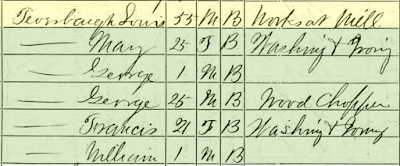 Teverbaugh Louis 55 M B Works at Mill
— May 25 F B Washing & Irong
— George 1 M B
— George 25 M B Wood Chopper
— Francis 21 F B Washing & Irong
— William 1 M B